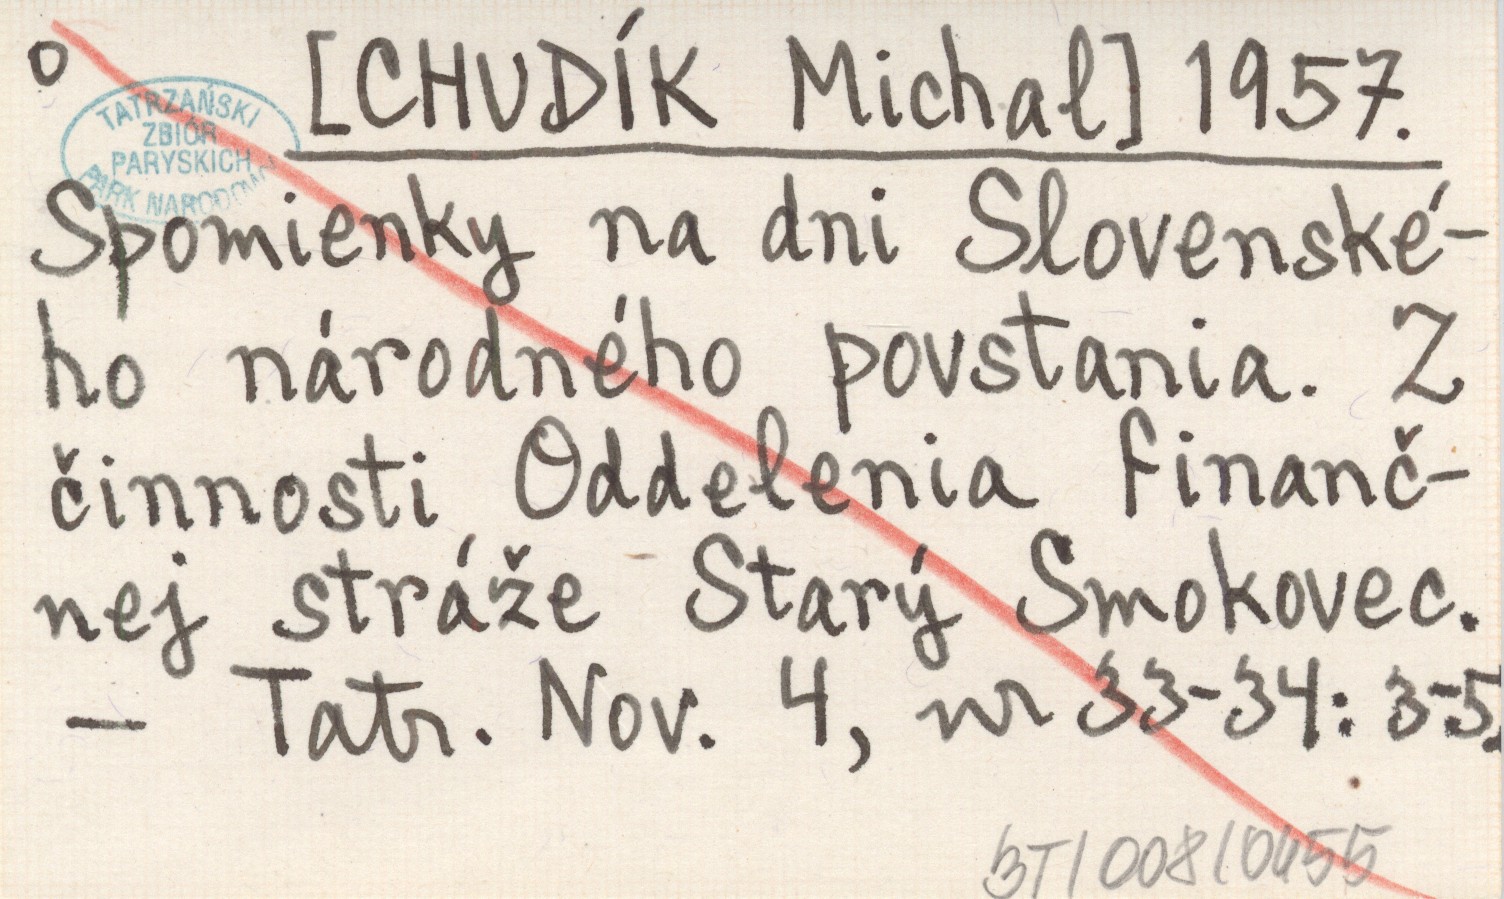 o [CHUDÍK Michal] 1957.
TATRZAŃSKI
ZBIÓR
PARYSKICH
PARK NARODOWY
Spomienky na dni Slovenské-
ho národného povstania. Z
činnosti Oddelenia finanč-
nej stráže Starý Smokovec.
— Tatr. Nov. 4, nr 33-34: 3-5.
BT/008/0455